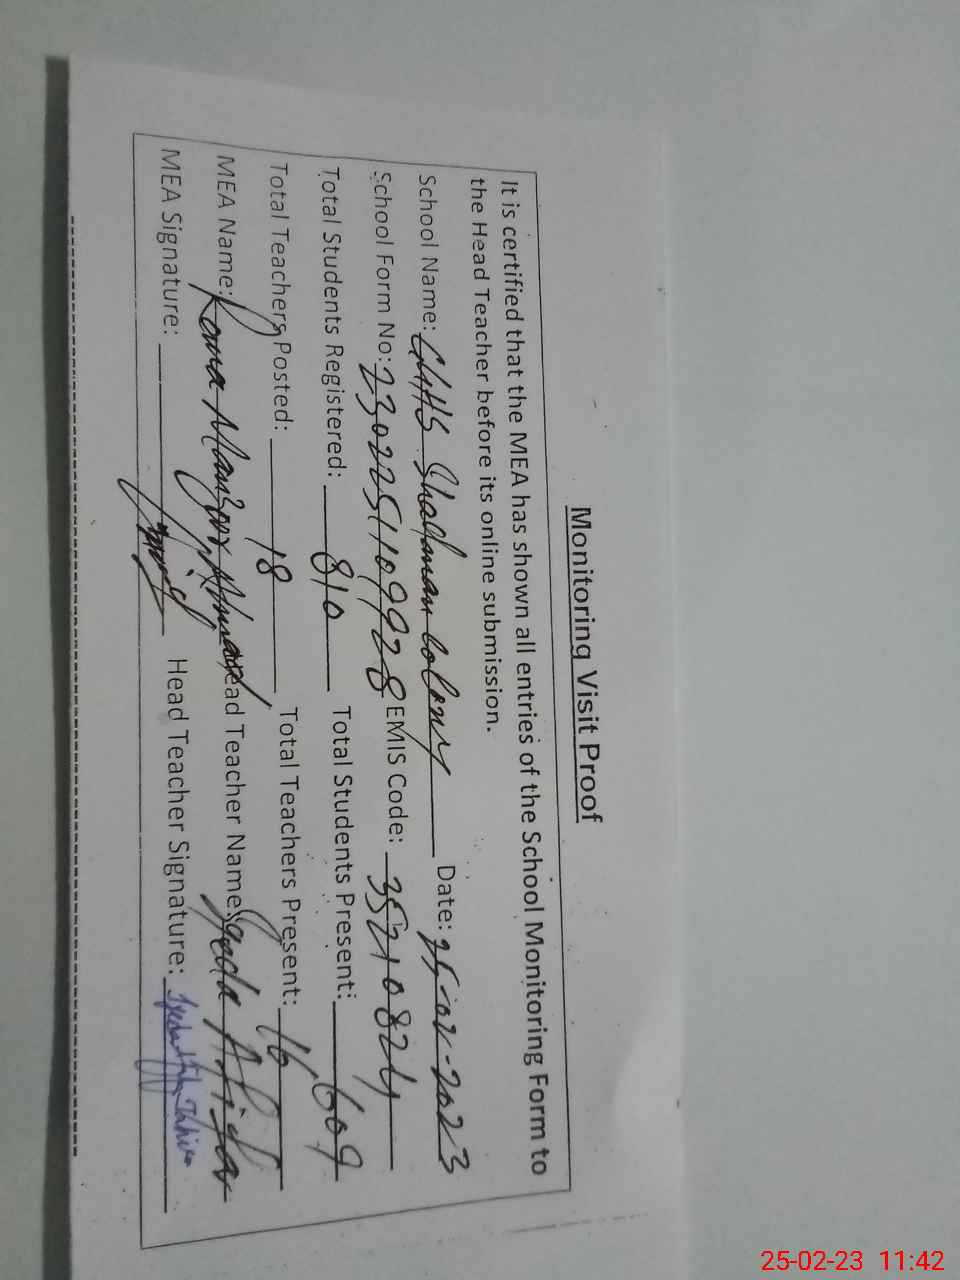 Monitoring Visit Proof
It is certified that the MEA has shown all entries of the School Monitoring Form to
the Head Teacher before its online submission.
School Name: GHHS Shadman Colony Date: 25-02-2023
School Form No: 2302251109928 EMIS Code: 35210824
Total Students Registered: 810 Total Students Present: 609
Total Teachers Posted: 18 Total Teachers Present: 16
MEA Name: Rana Manzoor Ahmad Head Teacher Name: Syeda
MEA Signature: Head Teacher Signature: Syeda
25-02-23 11:42